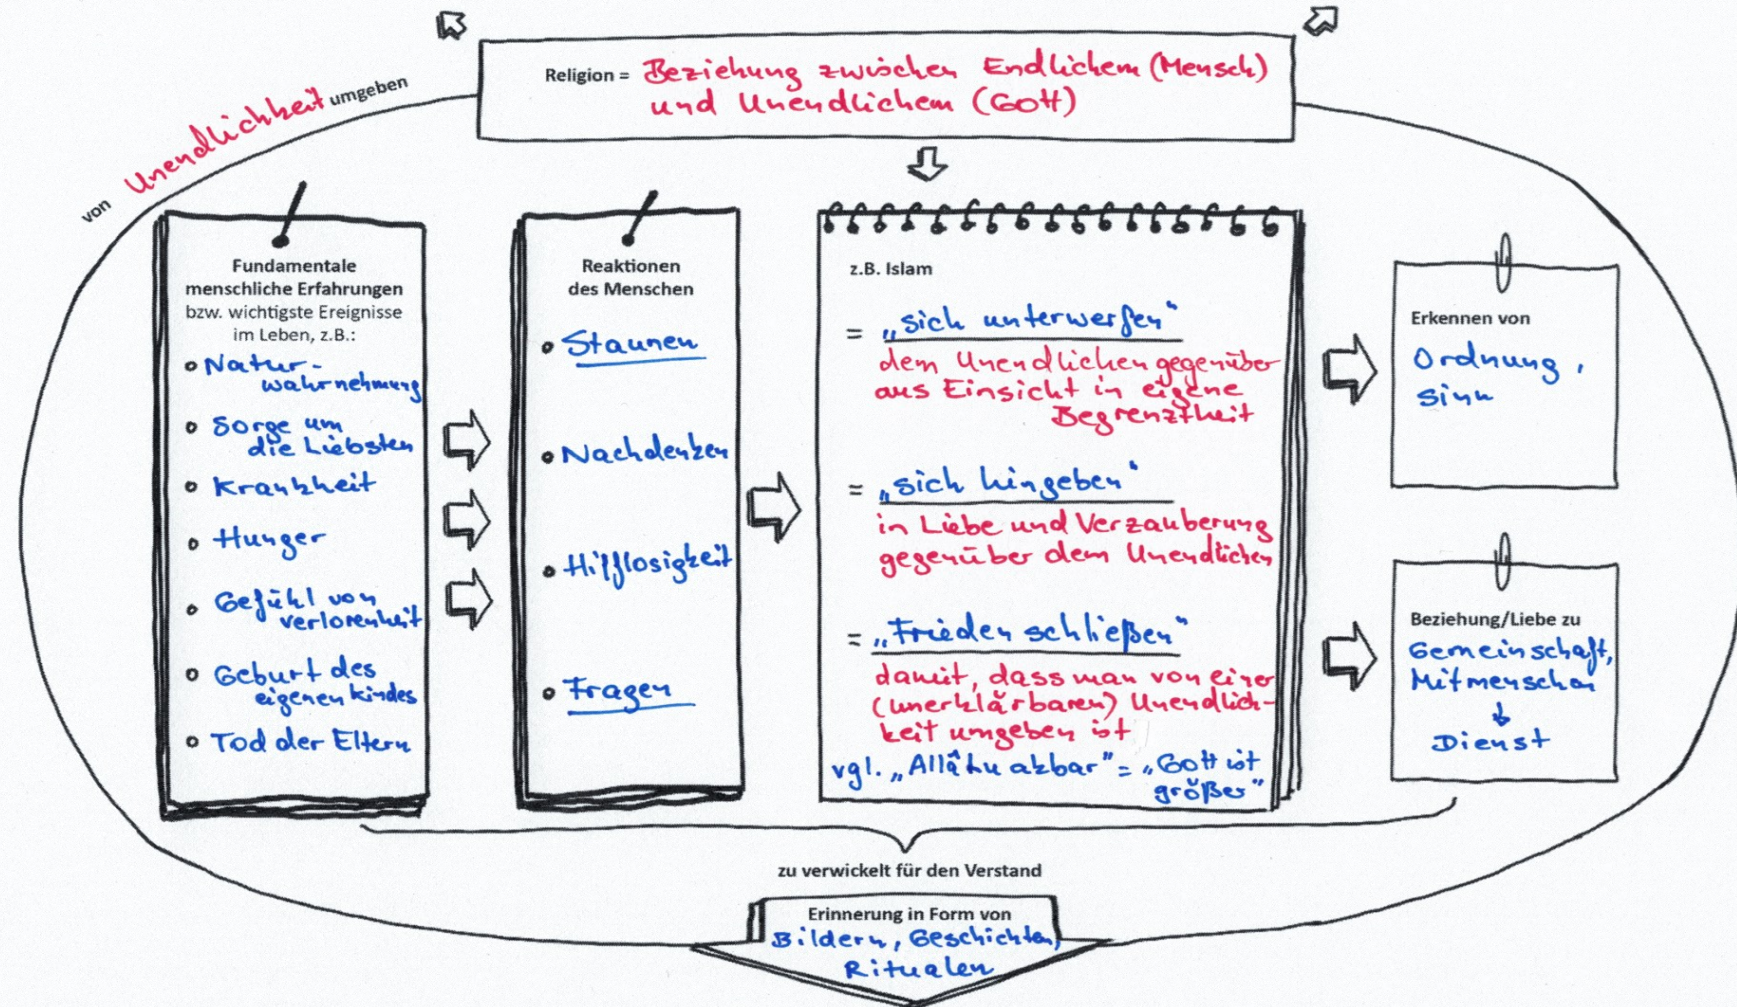 Religion = Beziehung zwischen Endlichem (Mensch)
und Unendlichem (Gott)
von Unendlichkeit umgeben
Fundamentale
menschliche Erfahrungen
bzw. wichtigste Ereignisse
im Leben, z.B.:
Natur-
wahrnehmung
Sorge um
die Liebsten
Krankheit
Hunger
Gefühl von
verlorenheit
Geburt des
eigenen Kindes
Tod der Eltern
Reaktionen
des Menschen
Staunen
Nachdenken
Hilflosigkeit
Fragen
z.B. Islam
= „sich unterwerfen“
dem Unendlichen gegenüber
aus Einsicht in eigene
Begrenztheit
= „sich hingeben“
in Liebe und Verzauberung
gegenüber dem Unendlichen
= „Frieden schließen“
damit, dass man von einer
(unerklärbaren) Unendlich-
keit umgeben ist
vgl. „Allâhu akbar“ = „Gott ist
größer“
Erkennen von
Ordnung,
Sinn
Beziehung/Liebe zu
Gemeinschaft,
Mitmenschen
Dienst
zu verwickelt für den Verstand
Erinnerung in Form von
Bildern, Geschichten,
Ritualen